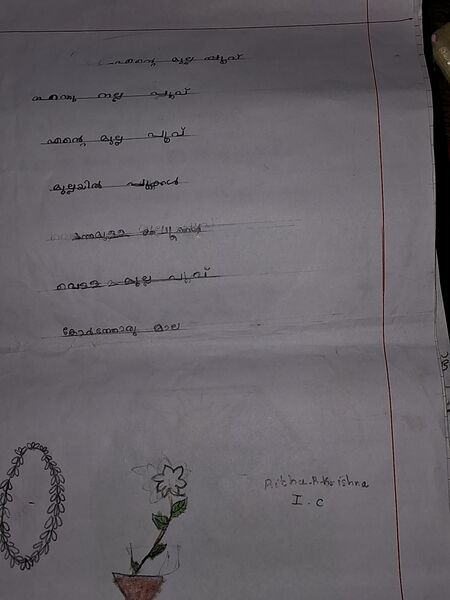 എന്റെ മുല്ല പൂവ്
എന്തു നല്ല പൂവ്
എന്റെ മുല്ല പൂവ്
മുല്ലയിൽ പൂക്കൾ
വെള്ള മുല്ല പൂവ്
കോർത്തൊരു മാല
Ritha.R.Krishna
I.C